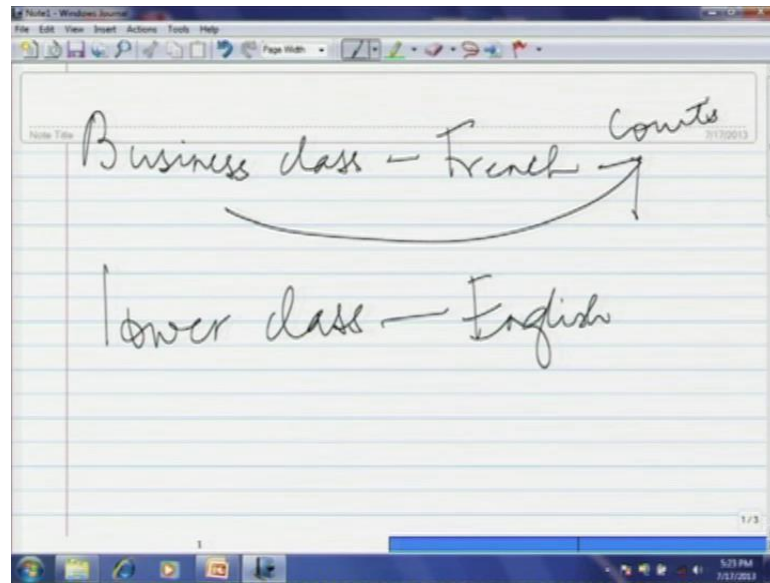 Note1 - Windows Journal
File Edit View Insert Actions Tools Help
Page Width
Note Title
7/17/2013
Courts
Business class - French
lower class - English
1/3
1
5:23 PM
7/17/2013